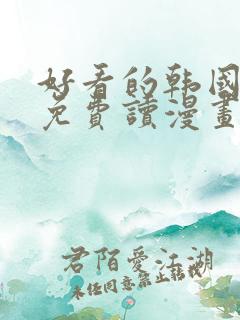 好看的韩国
免費讀漫畫
君陌愛江湖
未经同意禁止转载